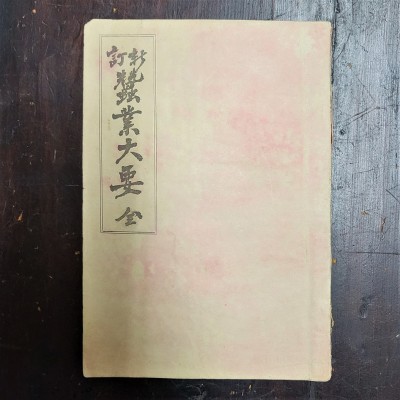 新訂蠶業大要 全